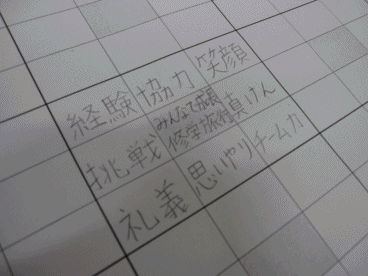 経験 協力 笑顔
挑戦 みんなで成長 真けん
修学旅行
礼義 思いやり チーム力